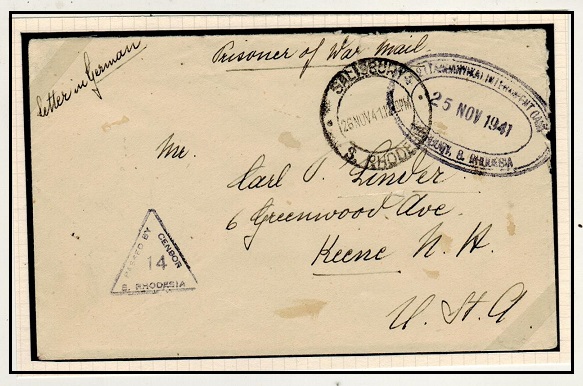 Letter in German
Prisoner of War Mail.
SALISBURY
26 NOV 41
S. RHODE
INTERNMENT CAMP
25 NOV 1941
S. RHODESIA
Mr.
Carl P. Linder
6 Greenwood Ave.
Keene N. H.
U. S. A.
PASSED BY
CENSOR
14
S. RHODESIA